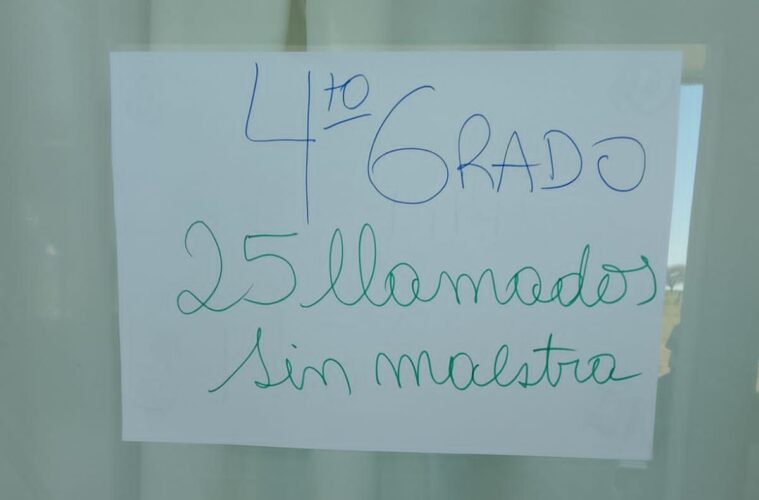 4to GRADO
25 llamados
sin maestra